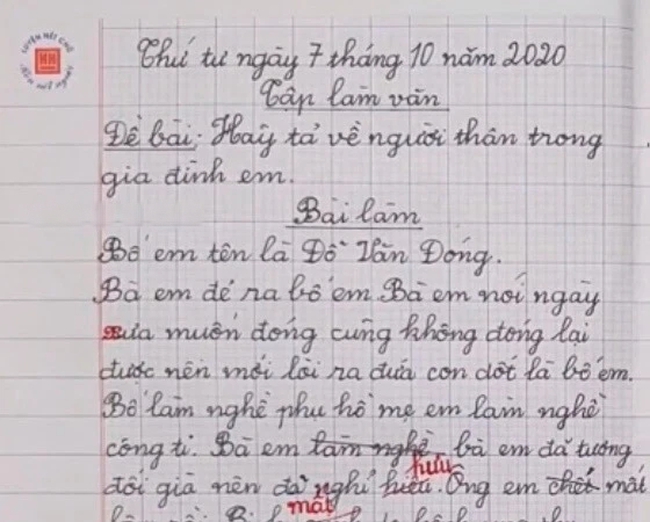 LUYỆN NÉT CHỮ
HH
RÈN NẾT NGƯỜI
Thứ tư ngày 7 tháng 10 năm 2020
Tập làm văn
Đề bài: Hãy tả về người thân trong
gia đình em.
Bài làm
Bố em tên là Đỗ Văn Đóng.
Bà em đẻ ra bố em. Bà em nói ngày
xưa muốn đóng cũng không đóng lại
được nên mới lòi ra đứa con dốt là bố em.
Bố làm nghề phụ hồ mẹ em làm nghề
công ti. Bà em làm nghề, bà em đã tương
hưu
đối già nên đã nghỉ hiêu. Ông em chết mất
mất